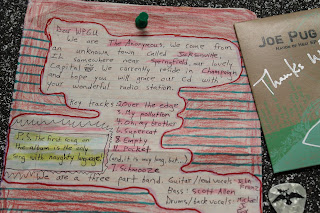 Dear WPGU
We are The Anonymous. We come from
an unknown town called Jacksonville,
IL somewhere near Springfield our lovely
Capital. We currently reside in Champaign
and hope you will grace our Cd with
your wonderful radio station.
Key tracks 2. Over the edge
3. My pollution
4. Oh, my brother
6. Supercat
8. Empty
11. Pocket
7. Schmooze
P.S. The first song on
the album is the only
song with naughty language!
(and, it is very long, but...)
We are a three part band. Guitar/lead vocals:
Bass: Scott Allen
Drums/back vocals: Michael
JOE PUG
Thanks